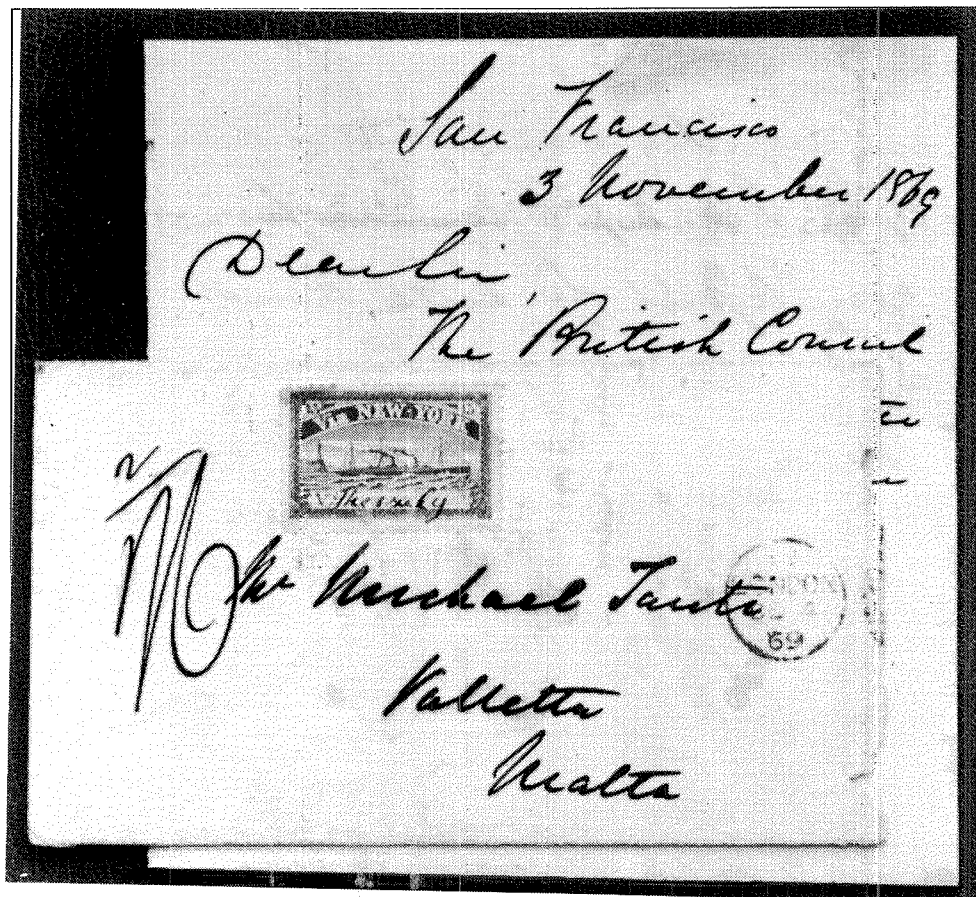 San Francisco
3 November 1869
Dear Sir,
The British Consul
via NEW-YORK
Mr Michael
Valletta
Malta
69